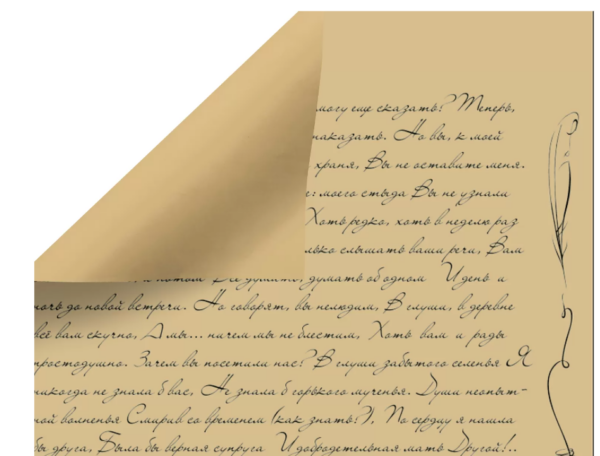 могу еще сказать? Теперь,
наказать. Но вы, к моей
храня, Вы не оставите меня.
моего стыда Вы не узнали
Хоть редко, хоть в неделю раз
слышать ваши речи, Вам
и потом Все думать, думать об одном И день и
ночь до новой встречи. Но говорят, вы нелюдим, В глуши, в деревне
всё вам скучно, А мы... ничем мы не блестим, Хоть вам и рады
простодушно. Зачем вы посетили нас? В глуши забытого селенья Я
никогда не знала б вас, Не знала б горького мученья. Души неопыт-
ной волненья Смирив со временем (как знать?), По сердцу я нашла
бы друга, Была бы верная супруга И добродетельная мать Другой!..